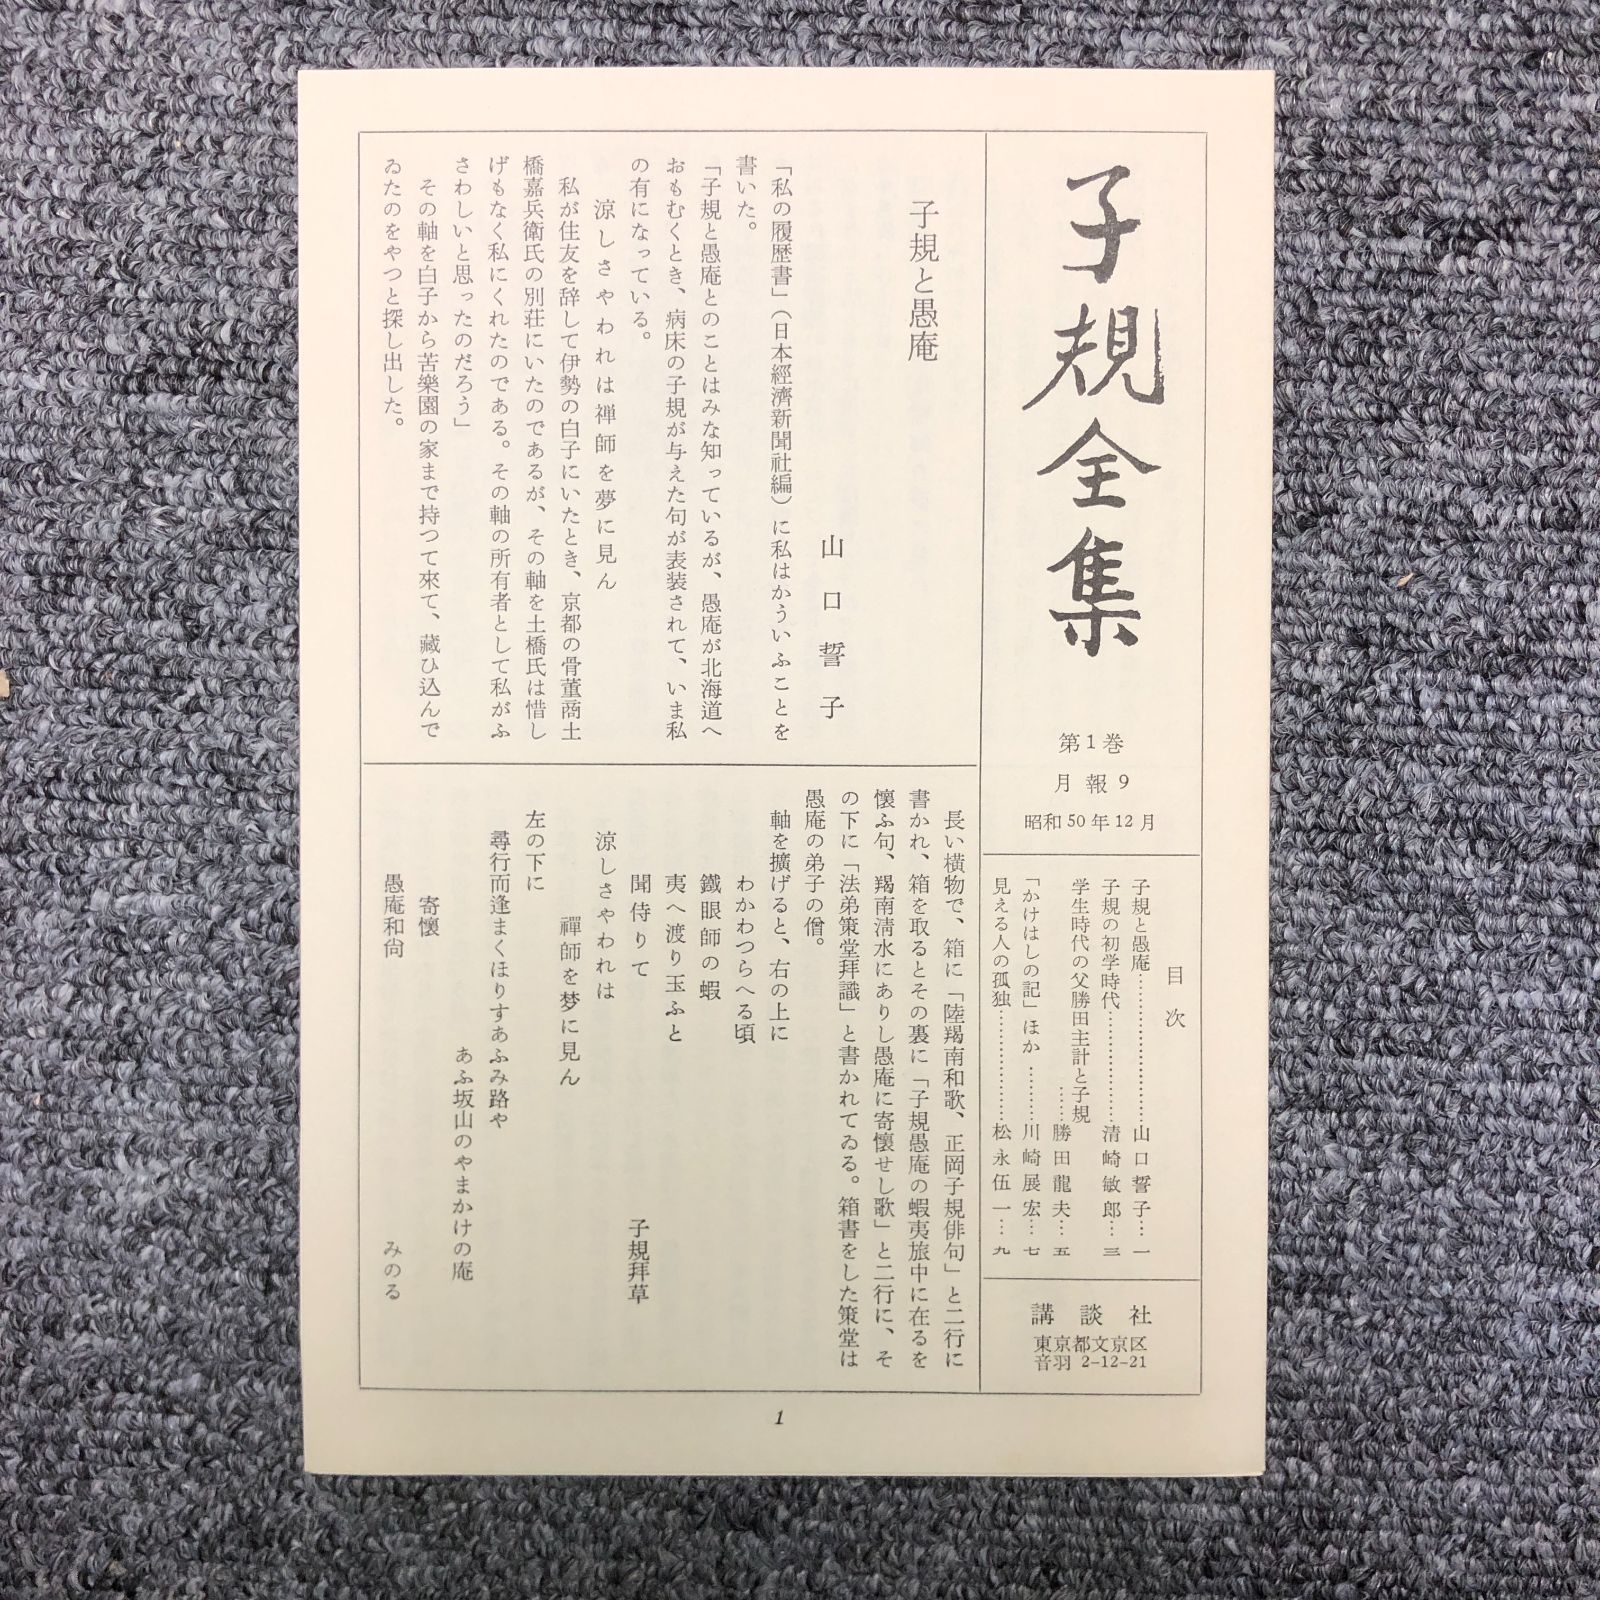 子規全集
第1巻
月報9
昭和50年12月
目次
子規と愚庵……………………山口誓子…一
子規の初学時代………………清崎敏郎…三
学生時代の父勝田主計と子規
……勝田龍夫…五
「かけはしの記」ほか…………川崎展宏…七
見える人の孤独………………松永伍一…九
講談社
東京都文京区
音羽 2-12-21
子規と愚庵
山口誓子
「私の履歴書」（日本經濟新聞社編）に私はかういふことを
書いた。
「子規と愚庵とのことはみな知っているが、愚庵が北海道へ
おもむくとき、病床の子規が与えた句が表装されて、いま私
の有になっている。
涼しさやわれは禅師を夢に見ん
私が住友を辞して伊勢の白子にいたとき、京都の骨董商土
橋嘉兵衛氏の別荘にいたのであるが、その軸を土橋氏は惜し
げもなく私にくれたのである。その軸の所有者として私がふ
さわしいと思ったのだろう」
その軸を白子から苦樂園の家まで持つて來て、藏ひ込んで
ゐたのをやつと探し出した。
長い横物で、箱に「陸羯南和歌、正岡子規俳句」と二行に
書かれ、箱を取るとその裏に「子規愚庵の蝦夷旅中に在るを
懷ふ句、羯南清水にありし愚庵に寄懷せし歌」と二行に、そ
の下に「法弟策堂拜識」と書かれてゐる。箱書をした策堂は
愚庵の弟子の僧。
軸を擴げると、右の上に
わかわつらへる頃
鐵眼師の蝦
夷へ渡り玉ふと
聞侍りて
子規拜草
涼しさやわれは
禪師を梦に見ん
左の下に
尋行而逢まくほりすあふみ路や
あふ坂山のやまかけの庵
寄懷
愚庵和尙
みのる
1